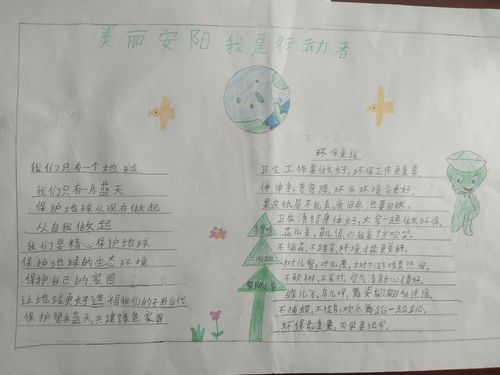 美丽安阳我是行动者
我们只有一个地球
我们只有一片蓝天
保护地球从现在做起
从自我做起
我们要精心保护地球
保护地球的生态环境
保护自己的家园
让地球更好造福我们的子孙后代
保护碧水蓝天,共建绿色家园
环保童谣
卫生工作要做好,环保工作更重要。
伸伸手,弯弯腰,环工环境会更好。
果皮纸屑不乱丢,废旧电池要回收。
卫生清洁身体好,大家一起做环保。
花儿美,草儿绿,你我看了欢欢笑。
不摘花,不踏草,环境才能更美好。
树儿密,叶儿茂,树下游戏真热闹。
不砍树,不采叶,空气清新心情好。
蝶儿飞,鸟儿叫,翩翩
不捕蝶,不捉鸟,欢乐舞蹈一起跳。
环保最重要,同学要记牢。
二